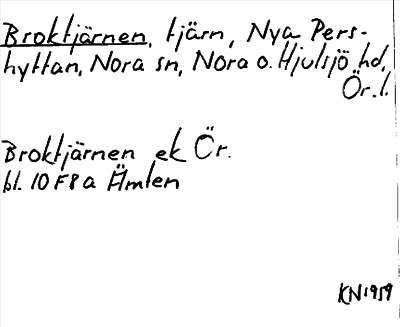 Broktjärnen, tjärn, Nya Pers-
hyttan, Nora sn, Nora o. Hjulsjö hd,
Ör. l.
Broktjärnen ek Ör.
bl. 10 F 8 a Ämten
KN 1959